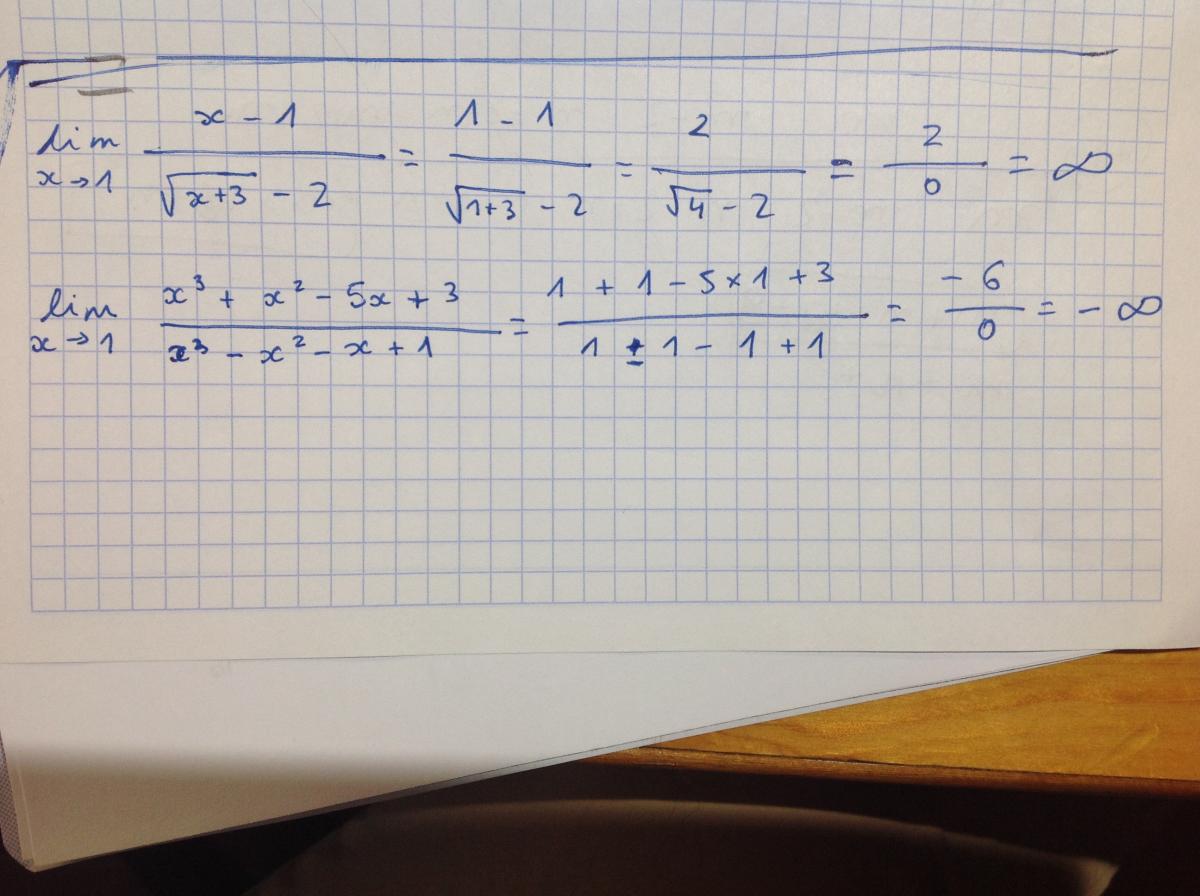 lim x→1 (x - 1)/(√(x+3) - 2) = (1 - 1)/(√(1+3) - 2) = 2/(√4 - 2) = 2/0 = ∞
lim x→1 (x³ + x² - 5x + 3)/(x³ - x² - x + 1) = (1 + 1 - 5×1 + 3)/(1 - 1 - 1 + 1) = -6/0 = -∞